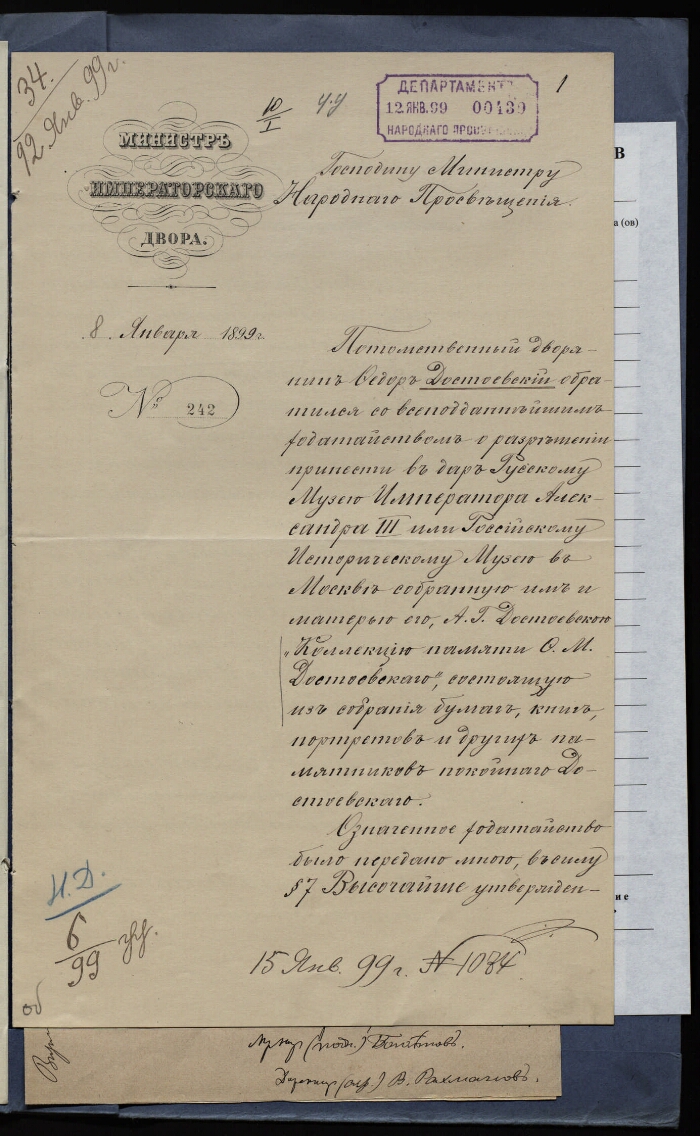 34.
12 Янв. 99 г.
10/I
ч.у
1
ДЕПАРТАМЕНТЪ
12 ЯНВ. 99 00439
НАРОДНАГО
МИНИСТРЪ
ИМПЕРАТОРСКАГО
ДВОРА.
Господину Министру
Народнаго Просвѣщенія.
8. Января 1899 г.
№ 242
Потомственный дворя-
нинъ Ѳедоръ Достоевскій обра-
тился со всеподданнѣйшимъ
ходатайствомъ о разрѣшеніи
принести въ даръ Русскому
Музею Императора Алек-
сандра III или Россійскому
Историческому Музею въ
Москвѣ собранную имъ и
матерью его, А. Г. Достоевскою
"Коллекцію памяти Ѳ. М.
Достоевскаго", состоящую
изъ собранія бумагъ, книгъ,
портретовъ и другихъ па-
мятниковъ покойнаго До-
стоевскаго.
Означенное ходатайство
было передано мною, въ силу
§ 7 Высочайше утвержден-
Н.Д.
6/99
15 Янв. 99 г. № 1034
об
(подп.)
В. Рахмановъ.
В
а (ов)
ие